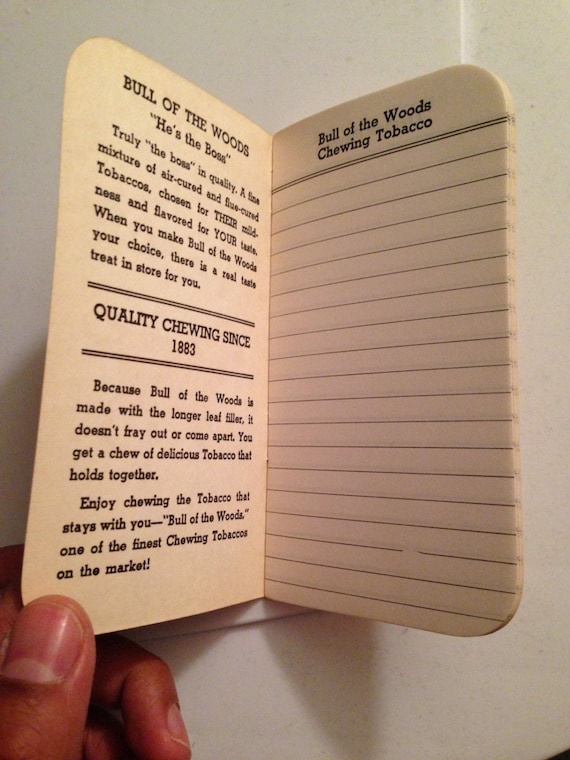 BULL OF THE WOODS
"He's the Boss"
Truly "the boss" in quality. A fine
mixture of air-cured and flue-cured
Tobaccos, chosen for THEIR mild-
ness and flavored for YOUR taste.
When you make Bull of the Woods
your choice, there is a real taste
treat in store for you.
QUALITY CHEWING SINCE
1883
Because Bull of the Woods is
made with the longer leaf filler, it
doesn't fray out or come apart. You
get a chew of delicious Tobacco that
holds together.
Enjoy chewing the Tobacco that
stays with you—"Bull of the Woods,"
one of the finest Chewing Tobaccos
on the market!
Bull of the Woods
Chewing Tobacco